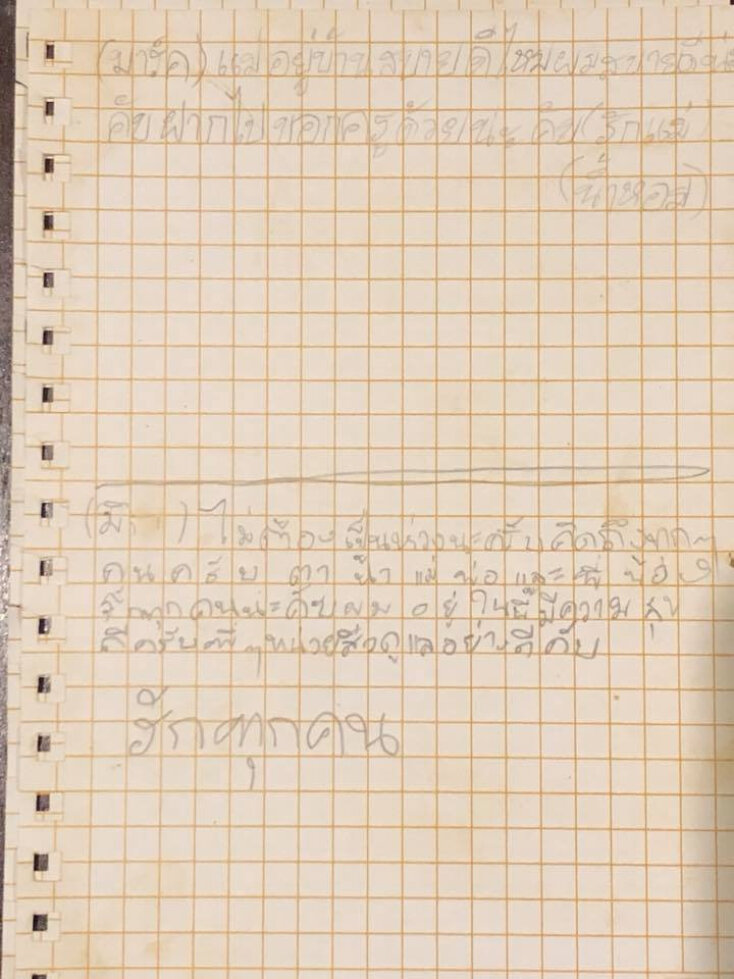 (มาร์ค) แม่อยู่บ้านสบายดีไหมผมสบายดี
คับฝากไปบอกครูด้วยนะคับ(รักแม่)
(น้ำหอม)
(มิ ) ไม่ต้องเป็นห่วงนะครับคิดถึงทุกๆ
คนครับ ตา น้า แม่ พ่อ และพี่ น้อง
รักทุกคนนะคับผม อยู่ในนี้มีความสุข
ดีครับพี่ๆหน่วยซีวดูแลอย่างดีคับ
รักทุกคน